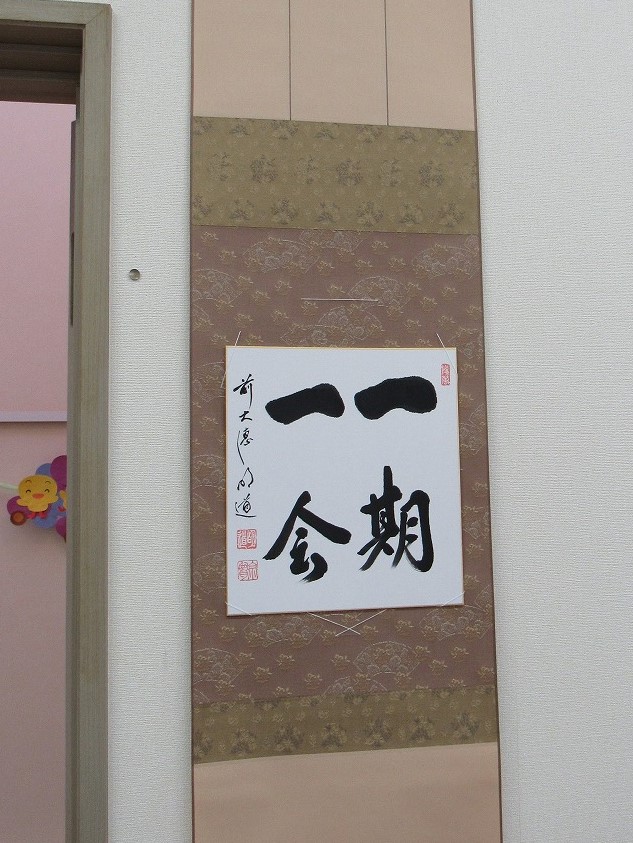 一期
一会
前大徳明道